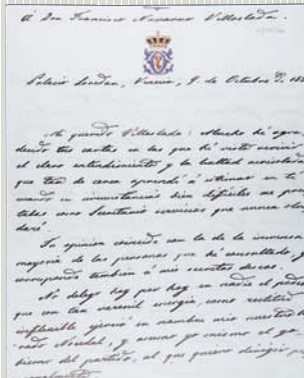 A Don Francisco Navarro Villoslada.
Palacio Loredan, Venecia, 9. de Octubre D. 188
Mi querido Villoslada: Mucho hé agra-
decido tus cartas en las que hé visto revivir
el claro entendimiento y la lealtad acrisolada
que tan de cerca aprendí á estimar en tí
cuando en circunstancias bien difíciles me pres-
tabas como Secretario servicios que nunca olvi-
daré.
Tu opinion coincide con la de la inmensa
mayoría de las personas que hé consultado, y
corresponde tambien á mis secretos deseos.
No delego hoy por hoy en nadie el poder
que con tan varonil energía, como rectitud
inflexible ejerció en nombre mio nuestro llo-
rado Nocedal, y asumo yo mismo el go-
bierno del partido, al que quiero dirigir per-
sonalmente